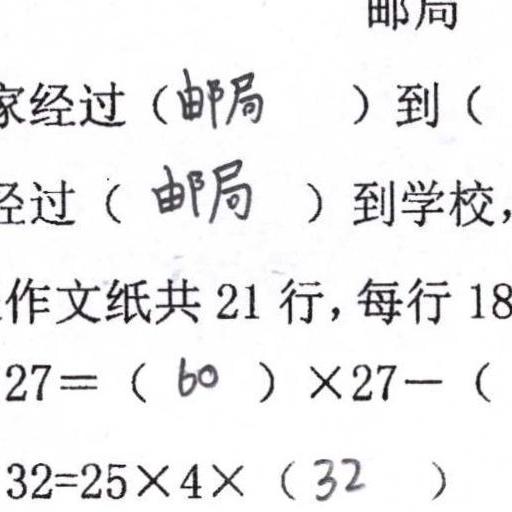 邮局
家经过（邮局）到（
经过（邮局）到学校，
作文纸共 21 行，每行 18
27＝（60）×27－（
32=25×4×（32）